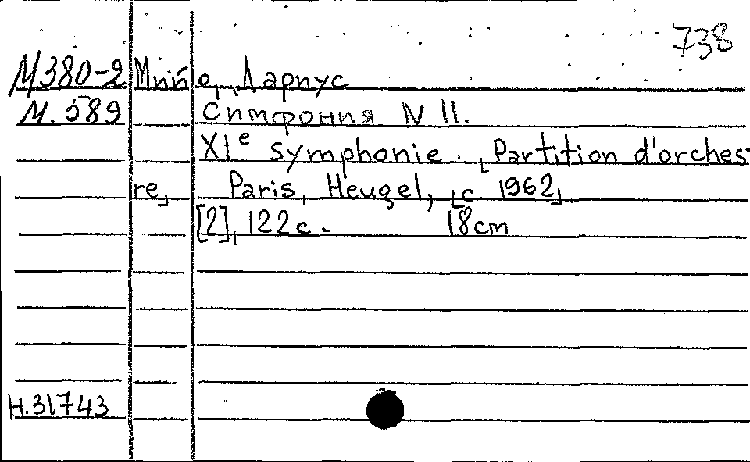 738
М380-2 Мийо, Дариус
М.589 Симфония N 11.
XIe symphonie. [Partition d'orchest
re] Paris, Heugel, [c 1962]
[2], 122с. 18cm
Н.31743